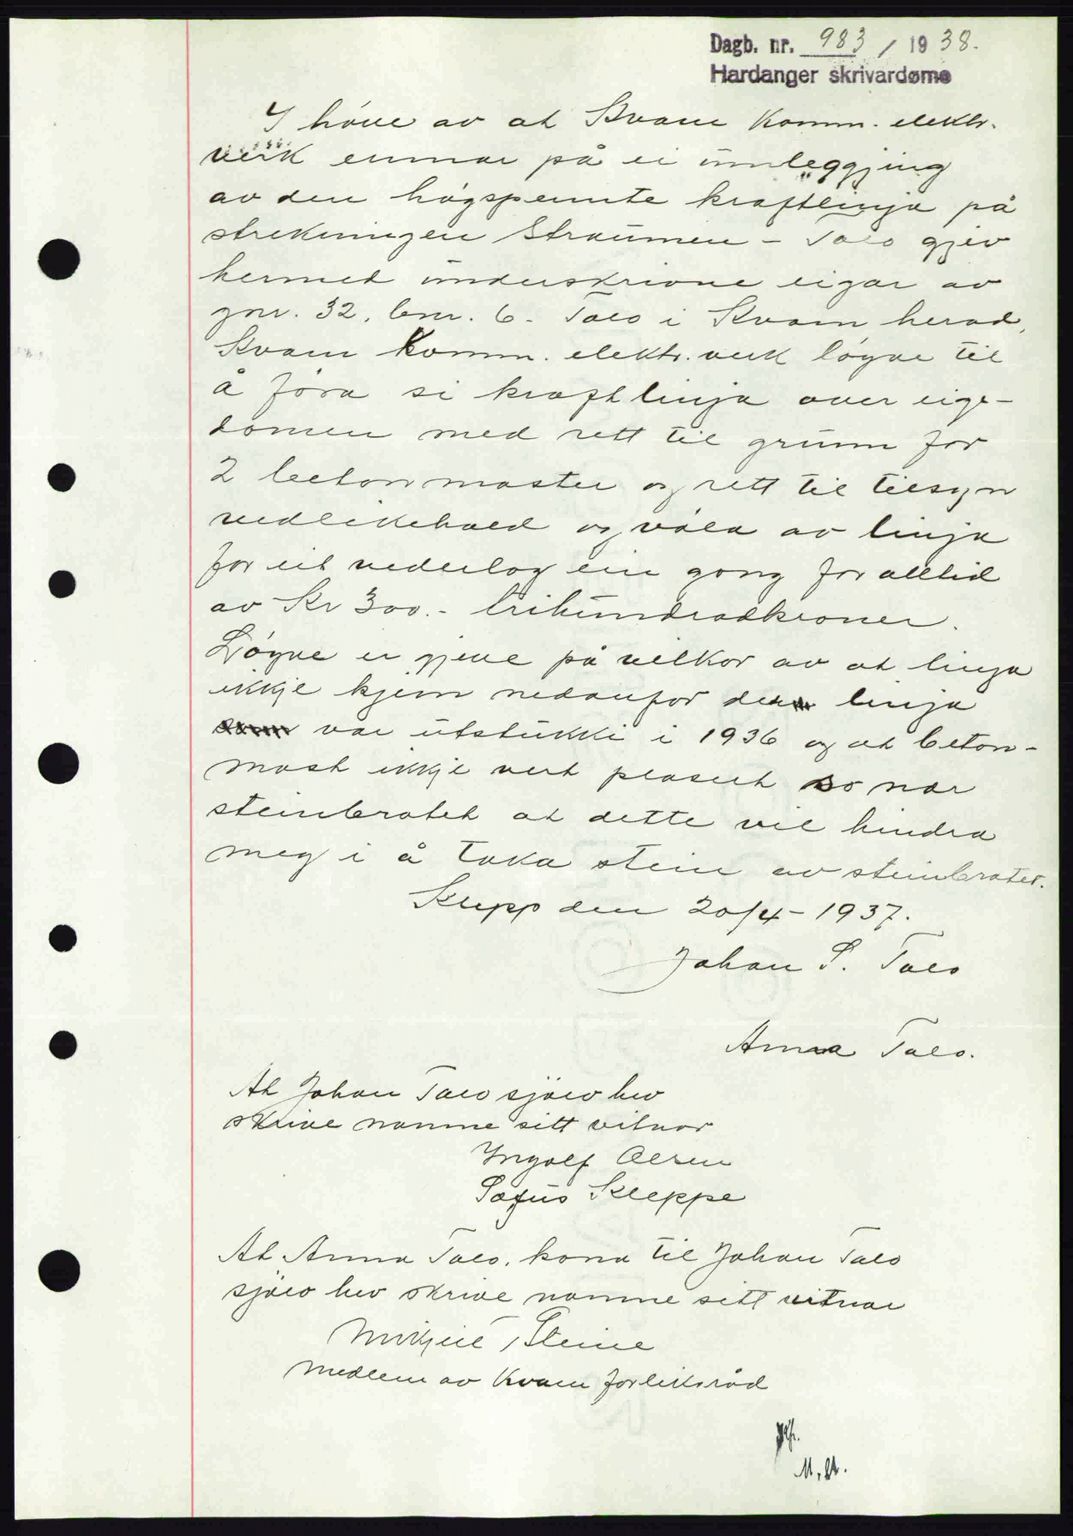 Dagb. nr. 983 / 1938.
Hardanger skrivardøme
I høve av at Kvam Komm. elektr.
verk emnar på ei umleggjing
av den høgspennte kraftlinja på
strekningen Straumen - Tolo gjev
hermed underskrivne eigar av
gnr. 32, bnr. 6. Tolo i Kvam herad,
Kvam Komm. elektr. verk løyve til
å föra si kraftlinja over eige-
domen med rett til grunn for
2 betonmaster og rett til tilsyn
vedlikehald og vøla av linja
for eit vederlag ein gong for alltid
av Kr 300.- trihundradkroner.
Løyve er gjeve på vilkor av at linja
ikkje kjem nedanfor den linja
som var utstukki i 1936 og at beton-
mast ikkje vert plasert so nær
steinbrotet at dette vil hindra
meg i å taka stein av steinbrotet.
Klepp den 20/4 - 1937.
Johan S. Tolo
Anna Tolo.
At Johan Tolo sjølv hev
skrive namne sitt vitnar
Ingolf Olsen
Sofus Kleppe
At Anna Tolo, kona til Johan Tolo
sjølv hev skrive namne sitt vitnar
Mikjell Steine
medlem av Kvam forliksråd